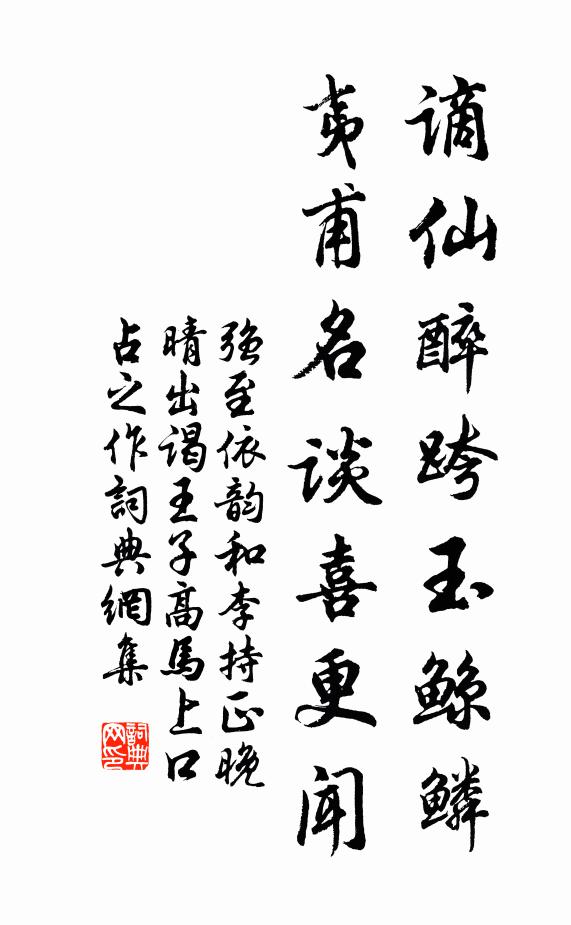 谪仙醉跨玉鲸鳞
夷甫名谈喜更闻
强至依韵和李持正晚
晴出谒王子高马上口
占之作詞典網集
詞典网印